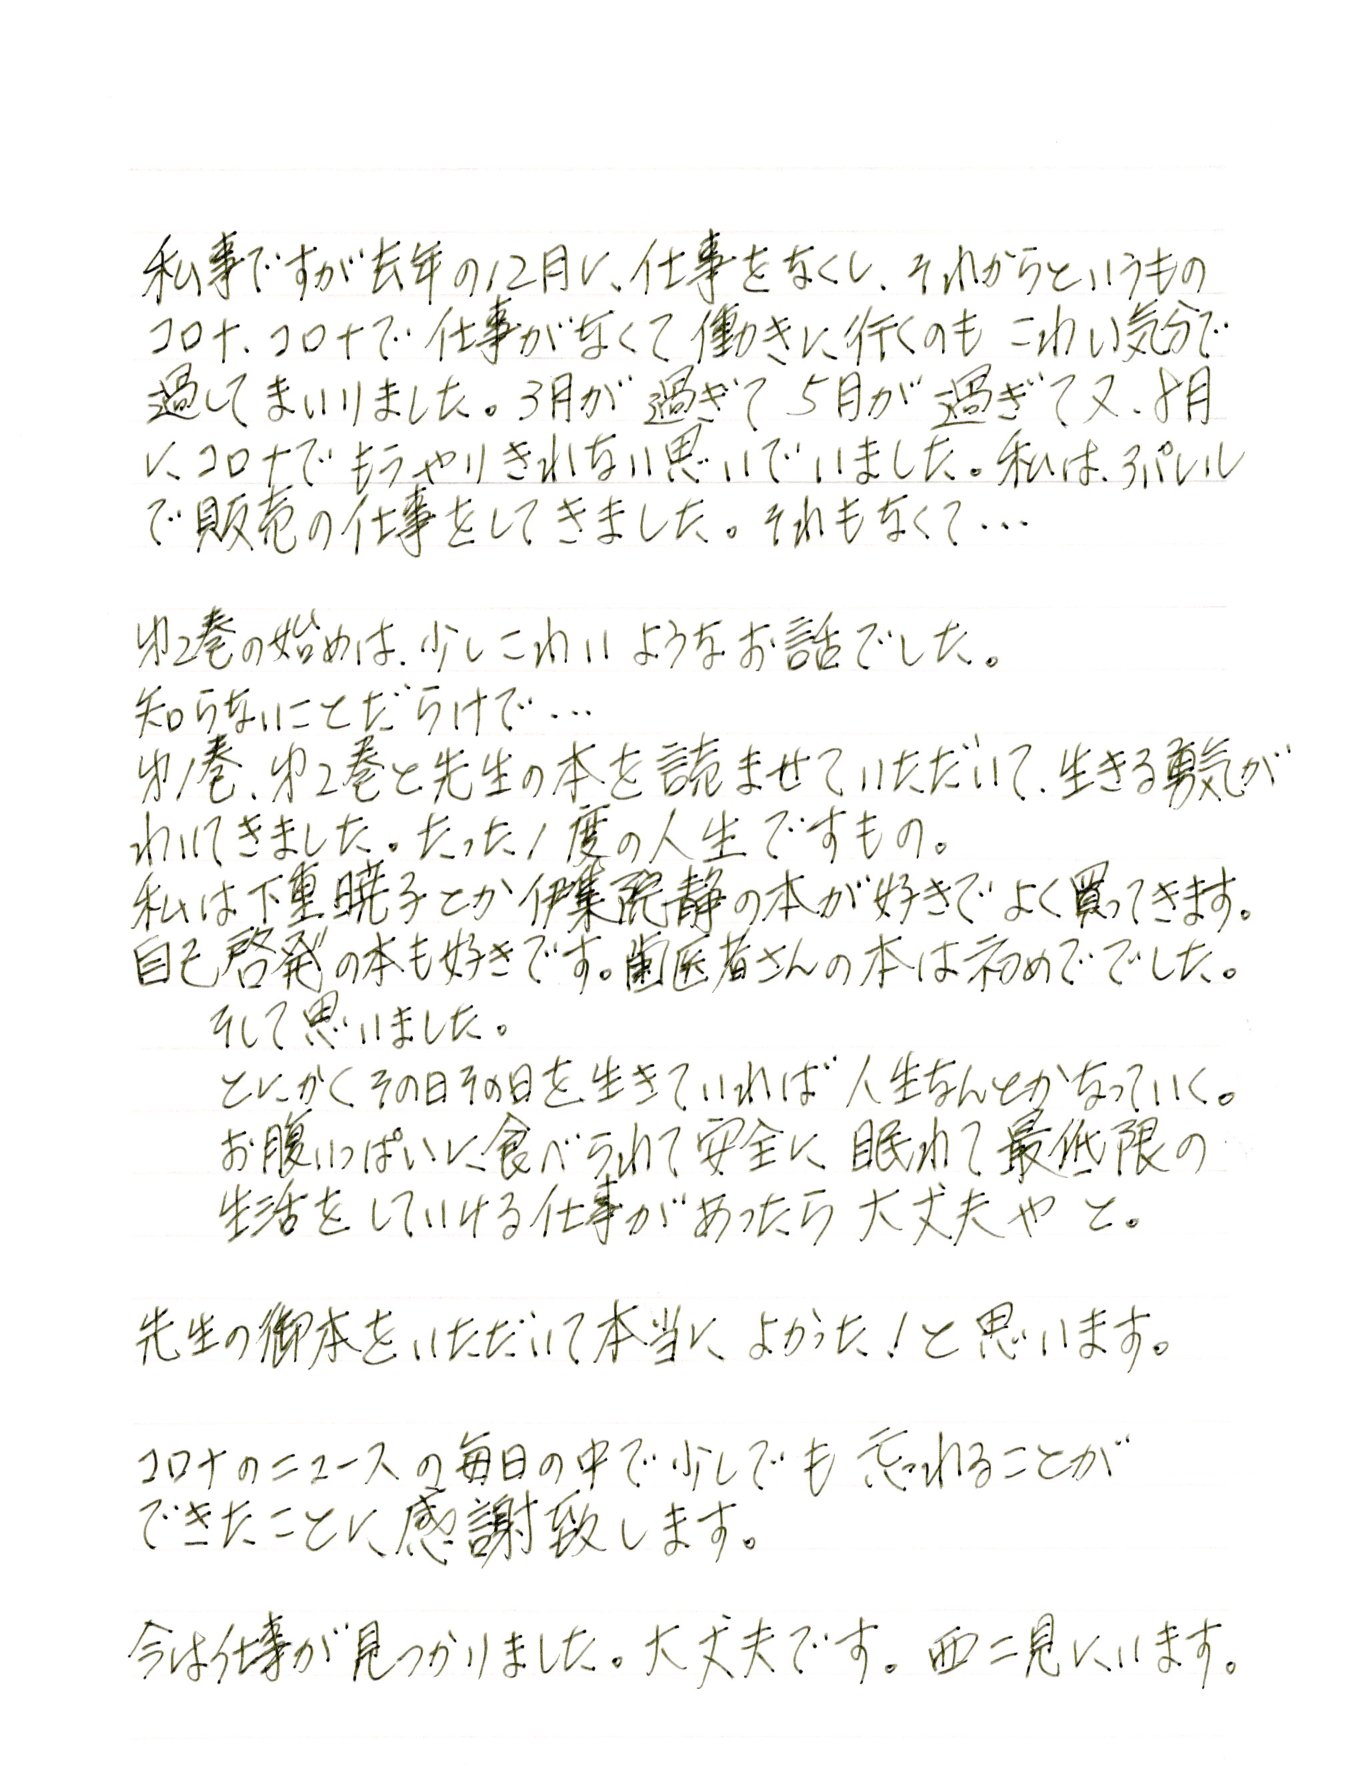 私事ですが去年の12月に、仕事をなくし、それからというもの
コロナ、コロナで仕事がなくて働きに行くのもこわい気分で
過してまいりました。3月が過ぎて5月が過ぎて又、8月
に、コロナでもうやりきれない思いでいました。私は、アパレル
で販売の仕事をしてきました。それもなくて…
第2巻の始めは、少しこわいようなお話でした。
知らないことだらけで…
第1巻、第2巻と先生の本を読ませていただいて、生きる勇気が
わいてきました。たった1度の人生ですもの。
私は下重暁子とか伊集院静の本が好きでよく買ってきます。
自己啓発の本も好きです。歯医者さんの本は初めてでした。
そして思いました。
とにかくその日その日を生きていれば人生なんとかなっていく。
お腹いっぱいに食べられて安全に眠れて最低限の
生活をしていける仕事があったら大丈夫やと。
先生の御本をいただいて本当によかった!と思います。
コロナのニュースの毎日の中で少しでも忘れることが
できたことに感謝致します。
今は仕事が見つかりました。大丈夫です。西二見にいます。